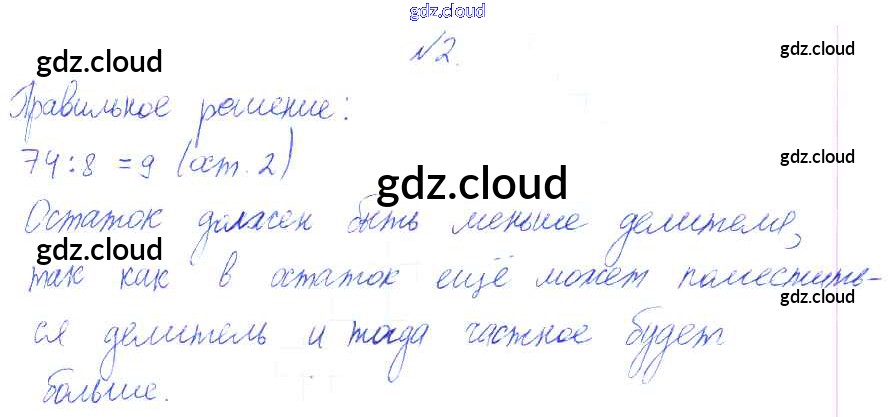 gdz.cloud
№2.
gdz.cloud
gdz.cloud
Правильное решение:
74:8 = 9 (ост. 2)
gdz.cloud
gdz.cloud
Остаток должен быть меньше делителя,
gdz.cloud
так как в остаток ещё может поместить-
gdz.cloud
ся делитель и тогда частное будет
больше.